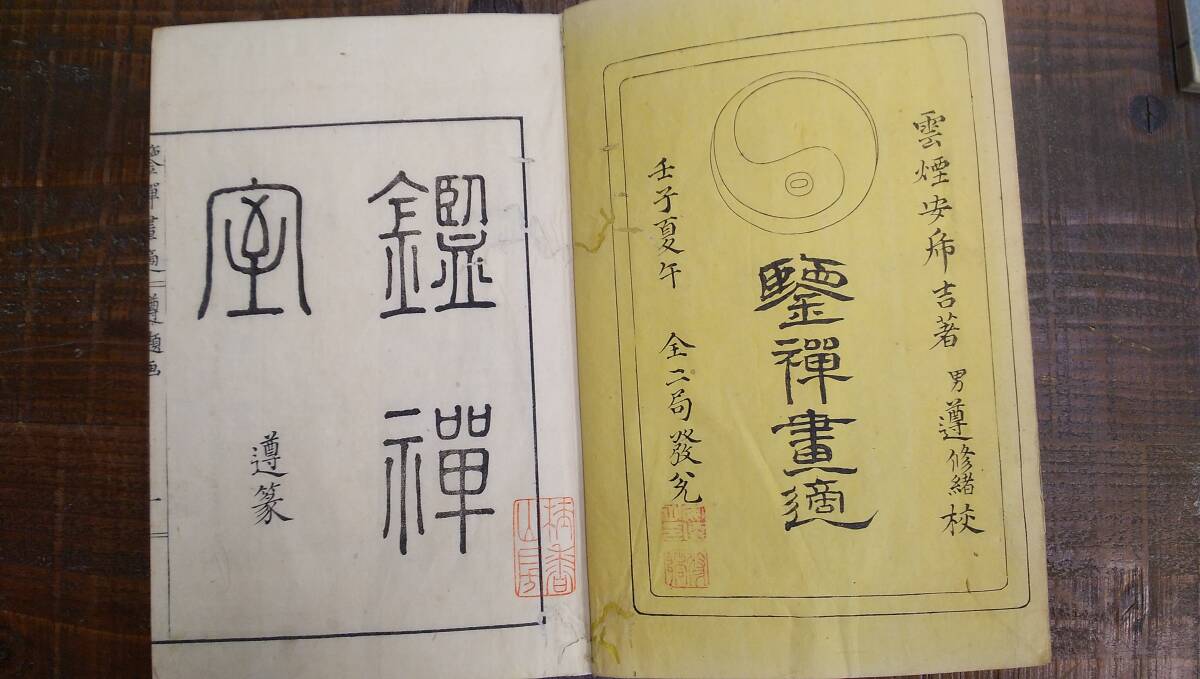 雲煙安㡀吉著 男遵修緒校
鑒禪畫適
壬子夏午 全二局發兌
鑑禪
室
遵篆
鑒禪畫適 遵題画
栖香
山房